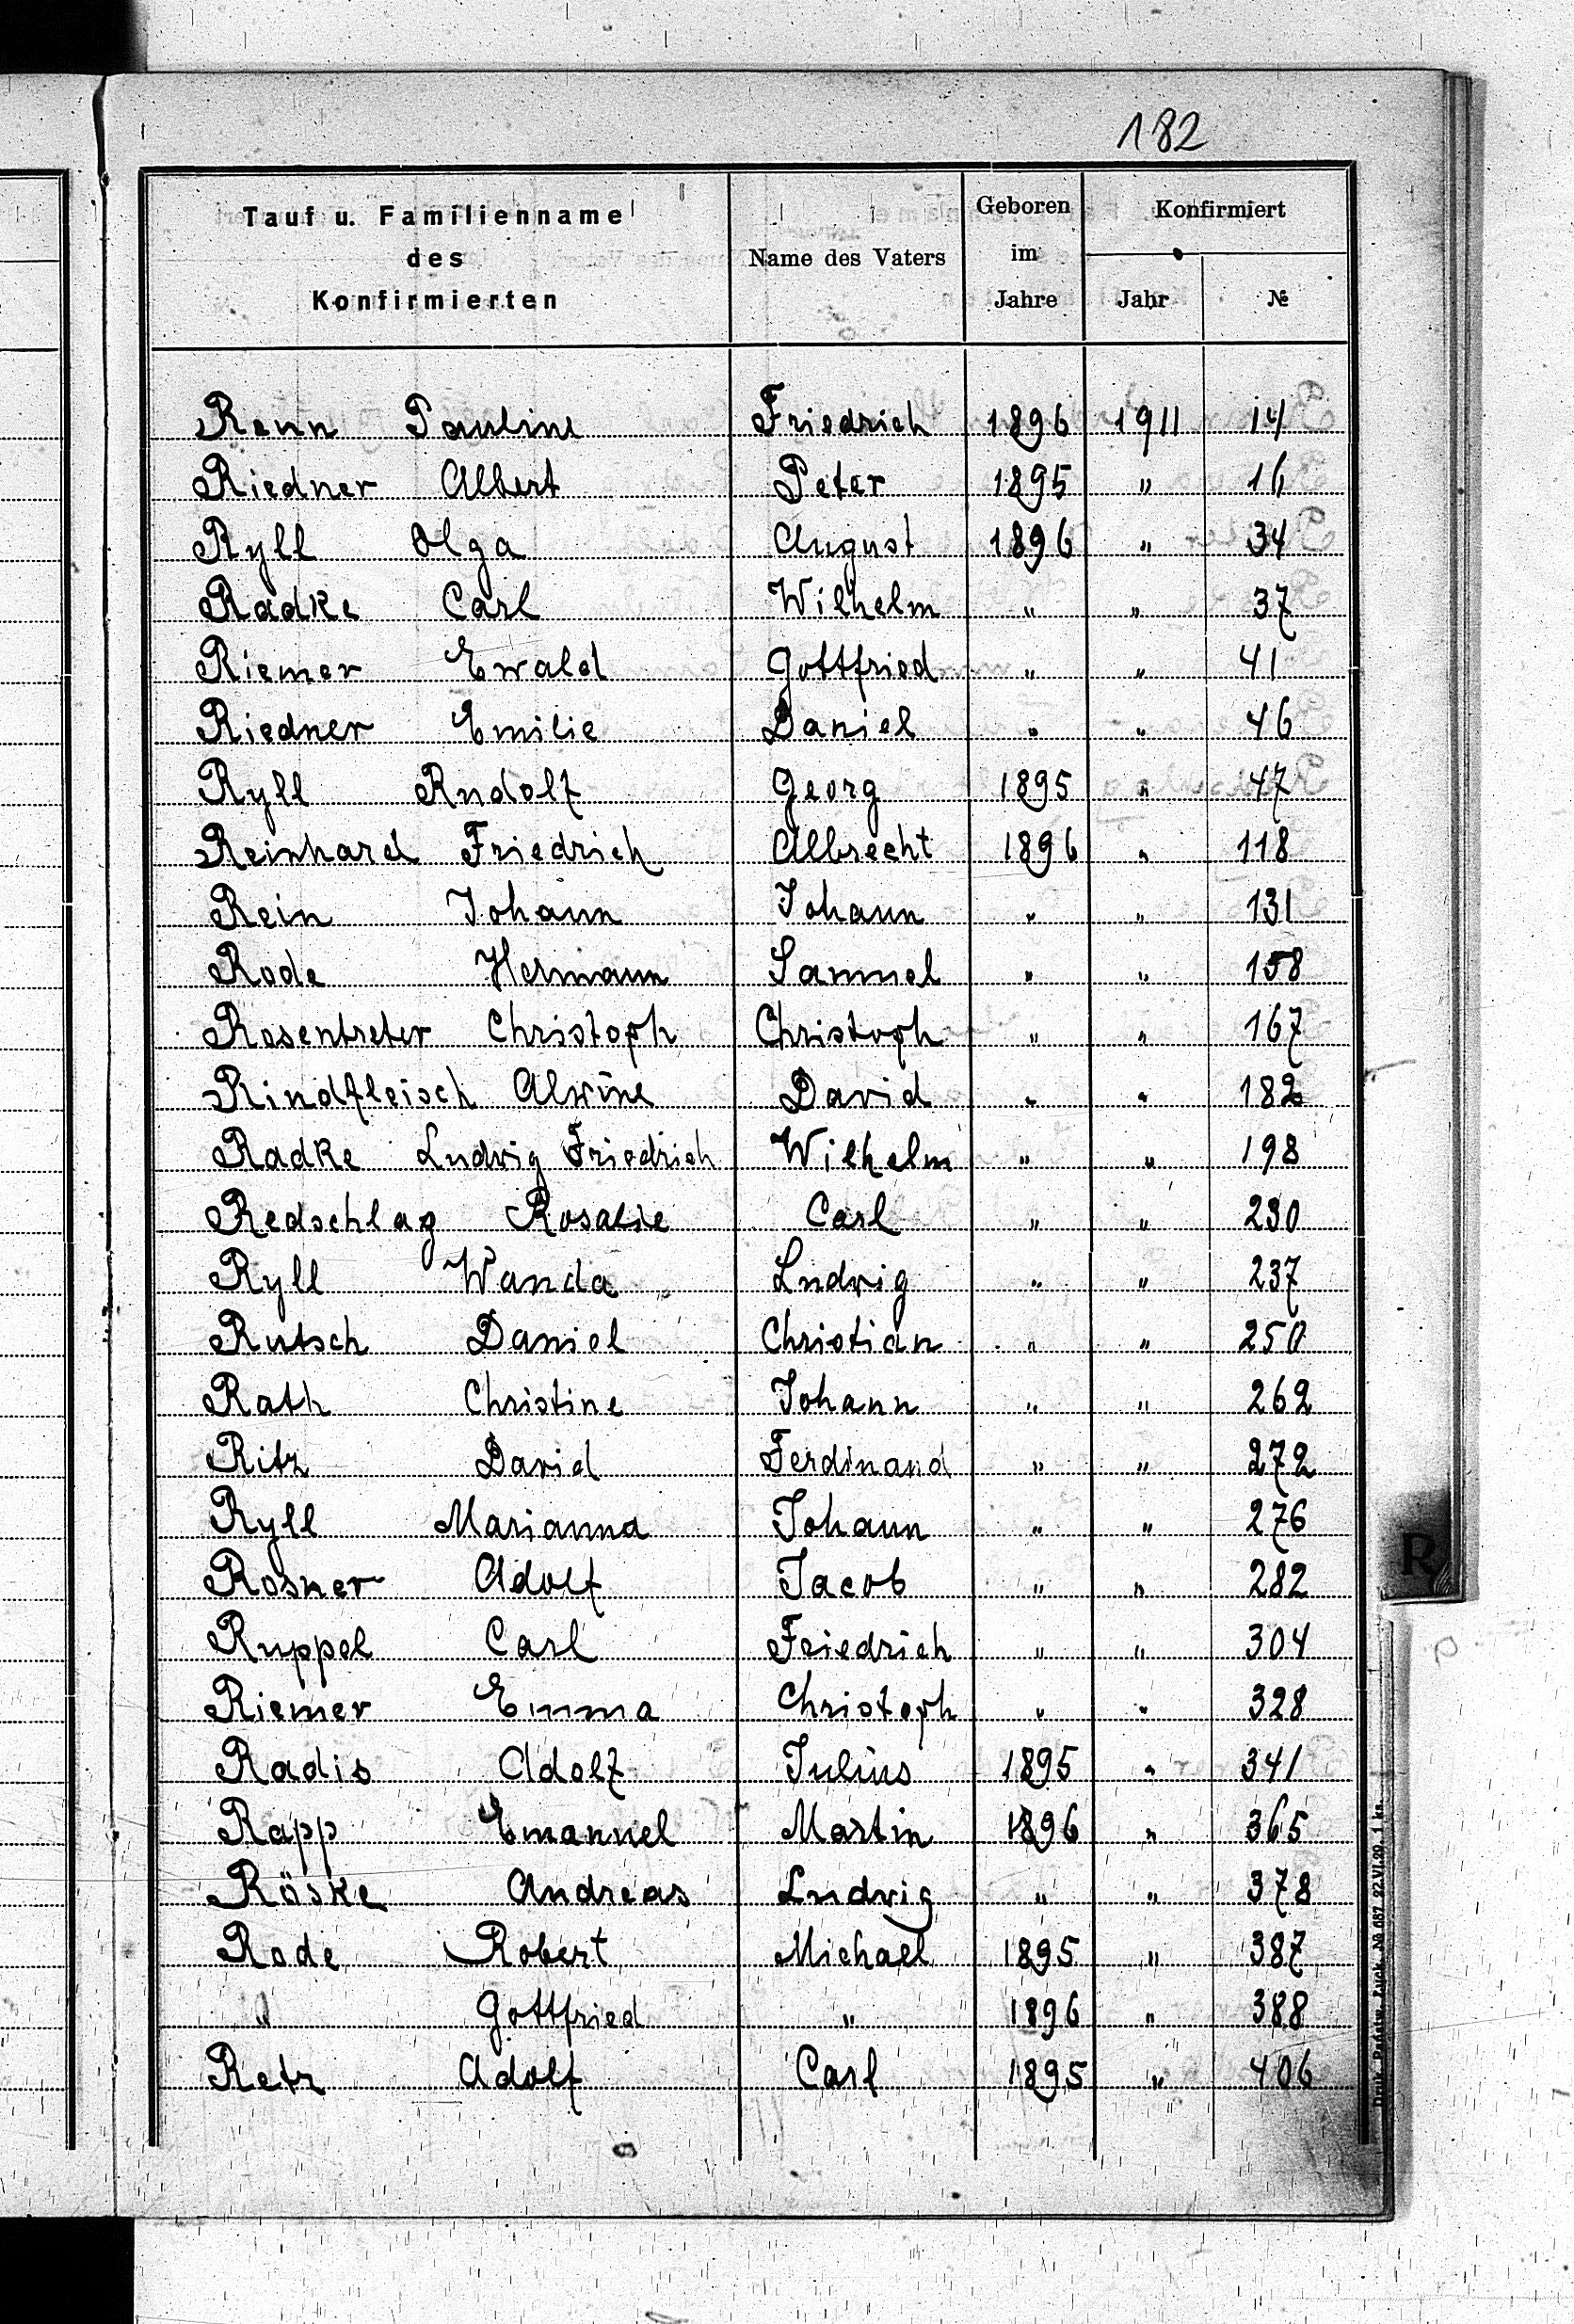 182
Tauf u. Familienname des Konfirmierten Name des Vaters Geboren im Jahre Konfirmiert Jahr №
Renn Pauline Friedrich 1896 1911 14
Riedner Albert Peter 1895 " 16
Ryll Olga August 1896 " 34
Radke Carl Wilhelm " " 37
Riemer Ewald Gottfried " " 41
Riedner Emilie Daniel " " 46
Ryll Rudolf Georg 1895 " 47
Reinhard Friedrich Albrecht 1896 " 118
Rein Johann Johann " " 131
Rode Hermann Samuel " " 158
Rosentreter Christoph Christoph " " 167
Rindfleisch Alwine David " " 182
Radke Ludwig Friedrich Wilhelm " " 198
Redschlag Rosalie Carl " " 230
Ryll Wanda Ludwig " " 237
Rutsch Daniel Christian " " 250
Rath Christine Johann " " 262
Ritz David Ferdinand " " 272
Ryll Marianna Johann " " 276
Rosner Adolf Jacob " " 282
Ruppel Carl Friedrich " " 304
Riemer Emma Christoph " " 328
Radis Adolf Julius 1895 " 341
Rapp Emanuel Martin 1896 " 365
Röske Andreas Ludwig " " 378
Rode Robert Michael 1895 " 387
" Gottfried " 1896 " 388
Retz Adolf Carl 1895 " 406
R
Druk. Państw. Łuck. № 687 27.VI.29. 1 ks.